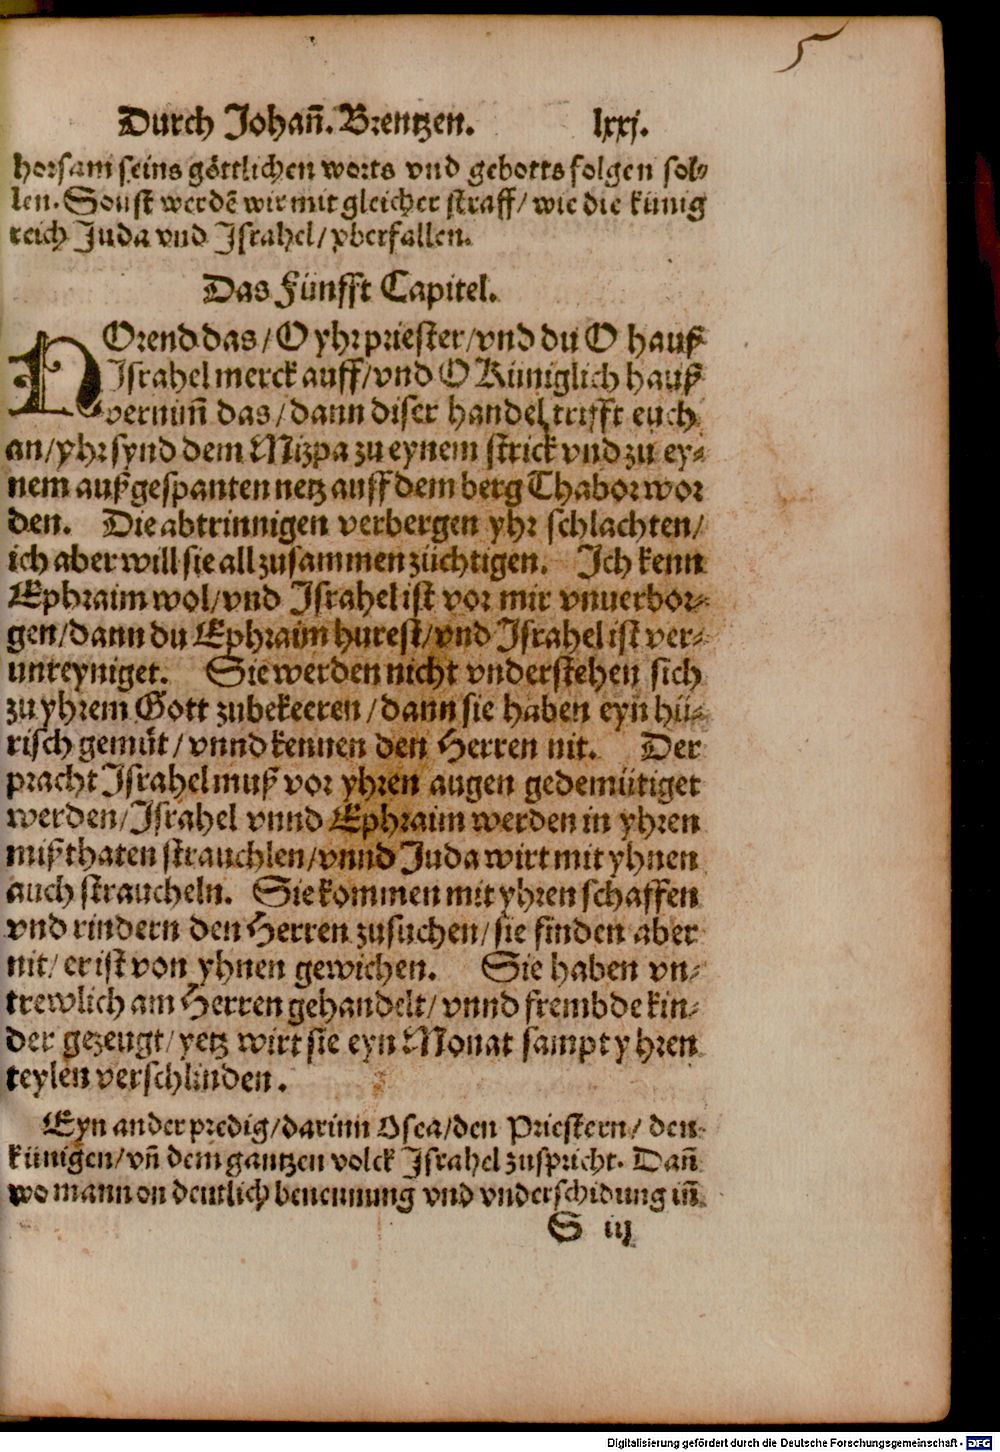 5
Durch Johañ. Brentzen. lxxj.
horsam seins göttlichen worts vnd gebotts folgen sol⸗
len. Sonst werdē wir mit gleicher straff/ wie die künig
reich Juda vnd Israhel/ yberfallen.
Das Fünfft Capitel.
HOrend das/ O yhr priester/ vnd du O hauß
Israhel merck auff/ vnd O Küniglich hauß
vernim̄ das/ dann diser handel trifft euch
an/ yhr synd dem Mizpa zu eynem strick vnd zu ey⸗
nem außgespanten netz auff dem berg Thabor wor
den. Die abtrinnigen verbergen yhr schlachten/
ich aber will sie all zusammen züchtigen. Ich kenn
Ephraim wol/ vnd Israhel ist vor mir vnuerbor⸗
gen/ dann du Ephraim hurest/ vnd Israhel ist ver⸗
unreyniget. Sie werden nicht vnderstehen sich
zu yhrem Gott zubekeeren/ dann sie haben eyn hü⸗
risch gemüt/ vnnd kennen den Herren nit. Der
pracht Israhel muß vor yhren augen gedemütiget
werden/ Israhel vnnd Ephraim werden in yhren
mißthaten strauchlen/ vnnd Juda wirt mit yhnen
auch straucheln. Sie kommen mit yhren schaffen
vnd rindern den Herren zusuchen/ sie finden aber
nit/ er ist von yhnen gewichen. Sie haben vn⸗
trewlich am Herren gehandelt/ vnnd frembde kin⸗
der gezeugt/ yetz wirt sie eyn Monat sampt yhren
teylen verschlinden.
Eyn ander predig/ darinn Osea/ den Priestern/ den
künigen/ vñ dem gantzen volck Israhel zuspricht. Dañ
wo mann on deutlich benennung vnd vnderschidung iñ
S iij
Digitalisierung gefördert durch die Deutsche Forschungsgemeinschaft - DFG